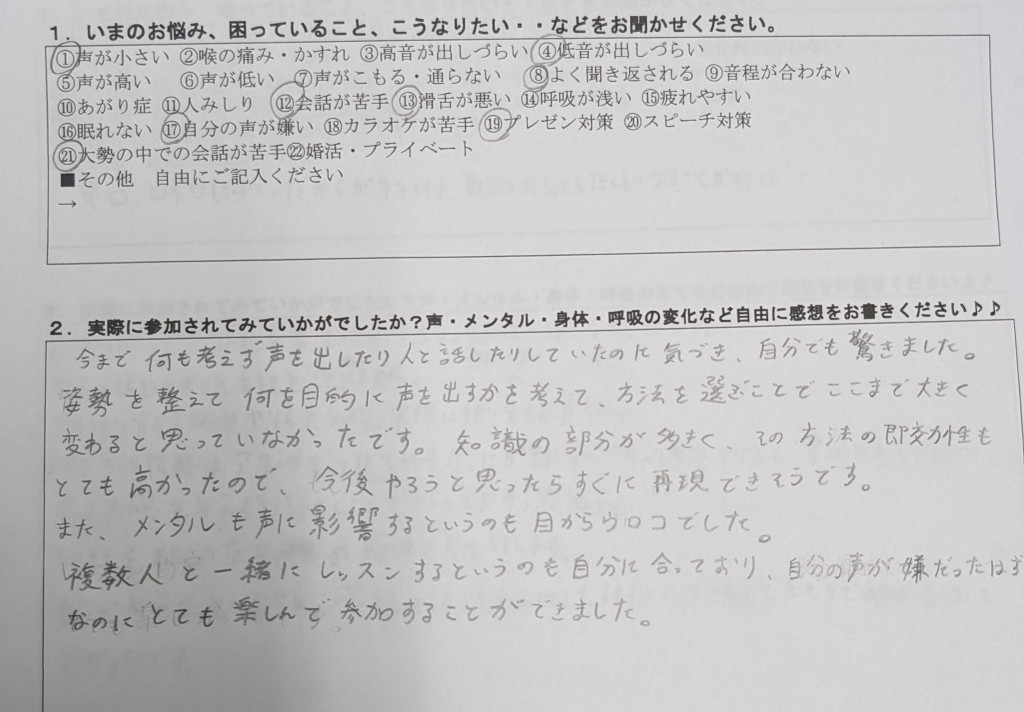 1．いまのお悩み、困っていること、こうなりたい・・などをお聞かせください。
①声が小さい ②喉の痛み・かすれ ③高音が出しづらい ④低音が出しづらい
⑤声が高い ⑥声が低い ⑦声がこもる・通らない ⑧よく聞き返される ⑨音程が合わない
⑩あがり症 ⑪人みしり ⑫会話が苦手 ⑬滑舌が悪い ⑭呼吸が浅い ⑮疲れやすい
⑯眠れない ⑰自分の声が嫌い ⑱カラオケが苦手 ⑲プレゼン対策 ⑳スピーチ対策
㉑大勢の中での会話が苦手㉒婚活・プライベート
■その他 自由にご記入ください
→
2．実際に参加されてみていかがでしたか？声・メンタル・身体・呼吸の変化など自由に感想をお書きください♪♪
今まで何も考えず声を出したり人と話したりしていたのに気づき、自分でも驚きました。
姿勢を整えて何を目的に声を出すかを考えて、方法を選ぶことでここまで大きく
変わると思っていなかったです。知識の部分が多きく、その方法の即効性も
とても高かったので、今後やろうと思ったらすぐに再現できそうです。
また、メンタルも声に影響するというのも目からウロコでした。
複数人と一緒にレッスンするというのも自分に合っており、自分の声が嫌だったはず
なのにとても楽しんで参加することができました。